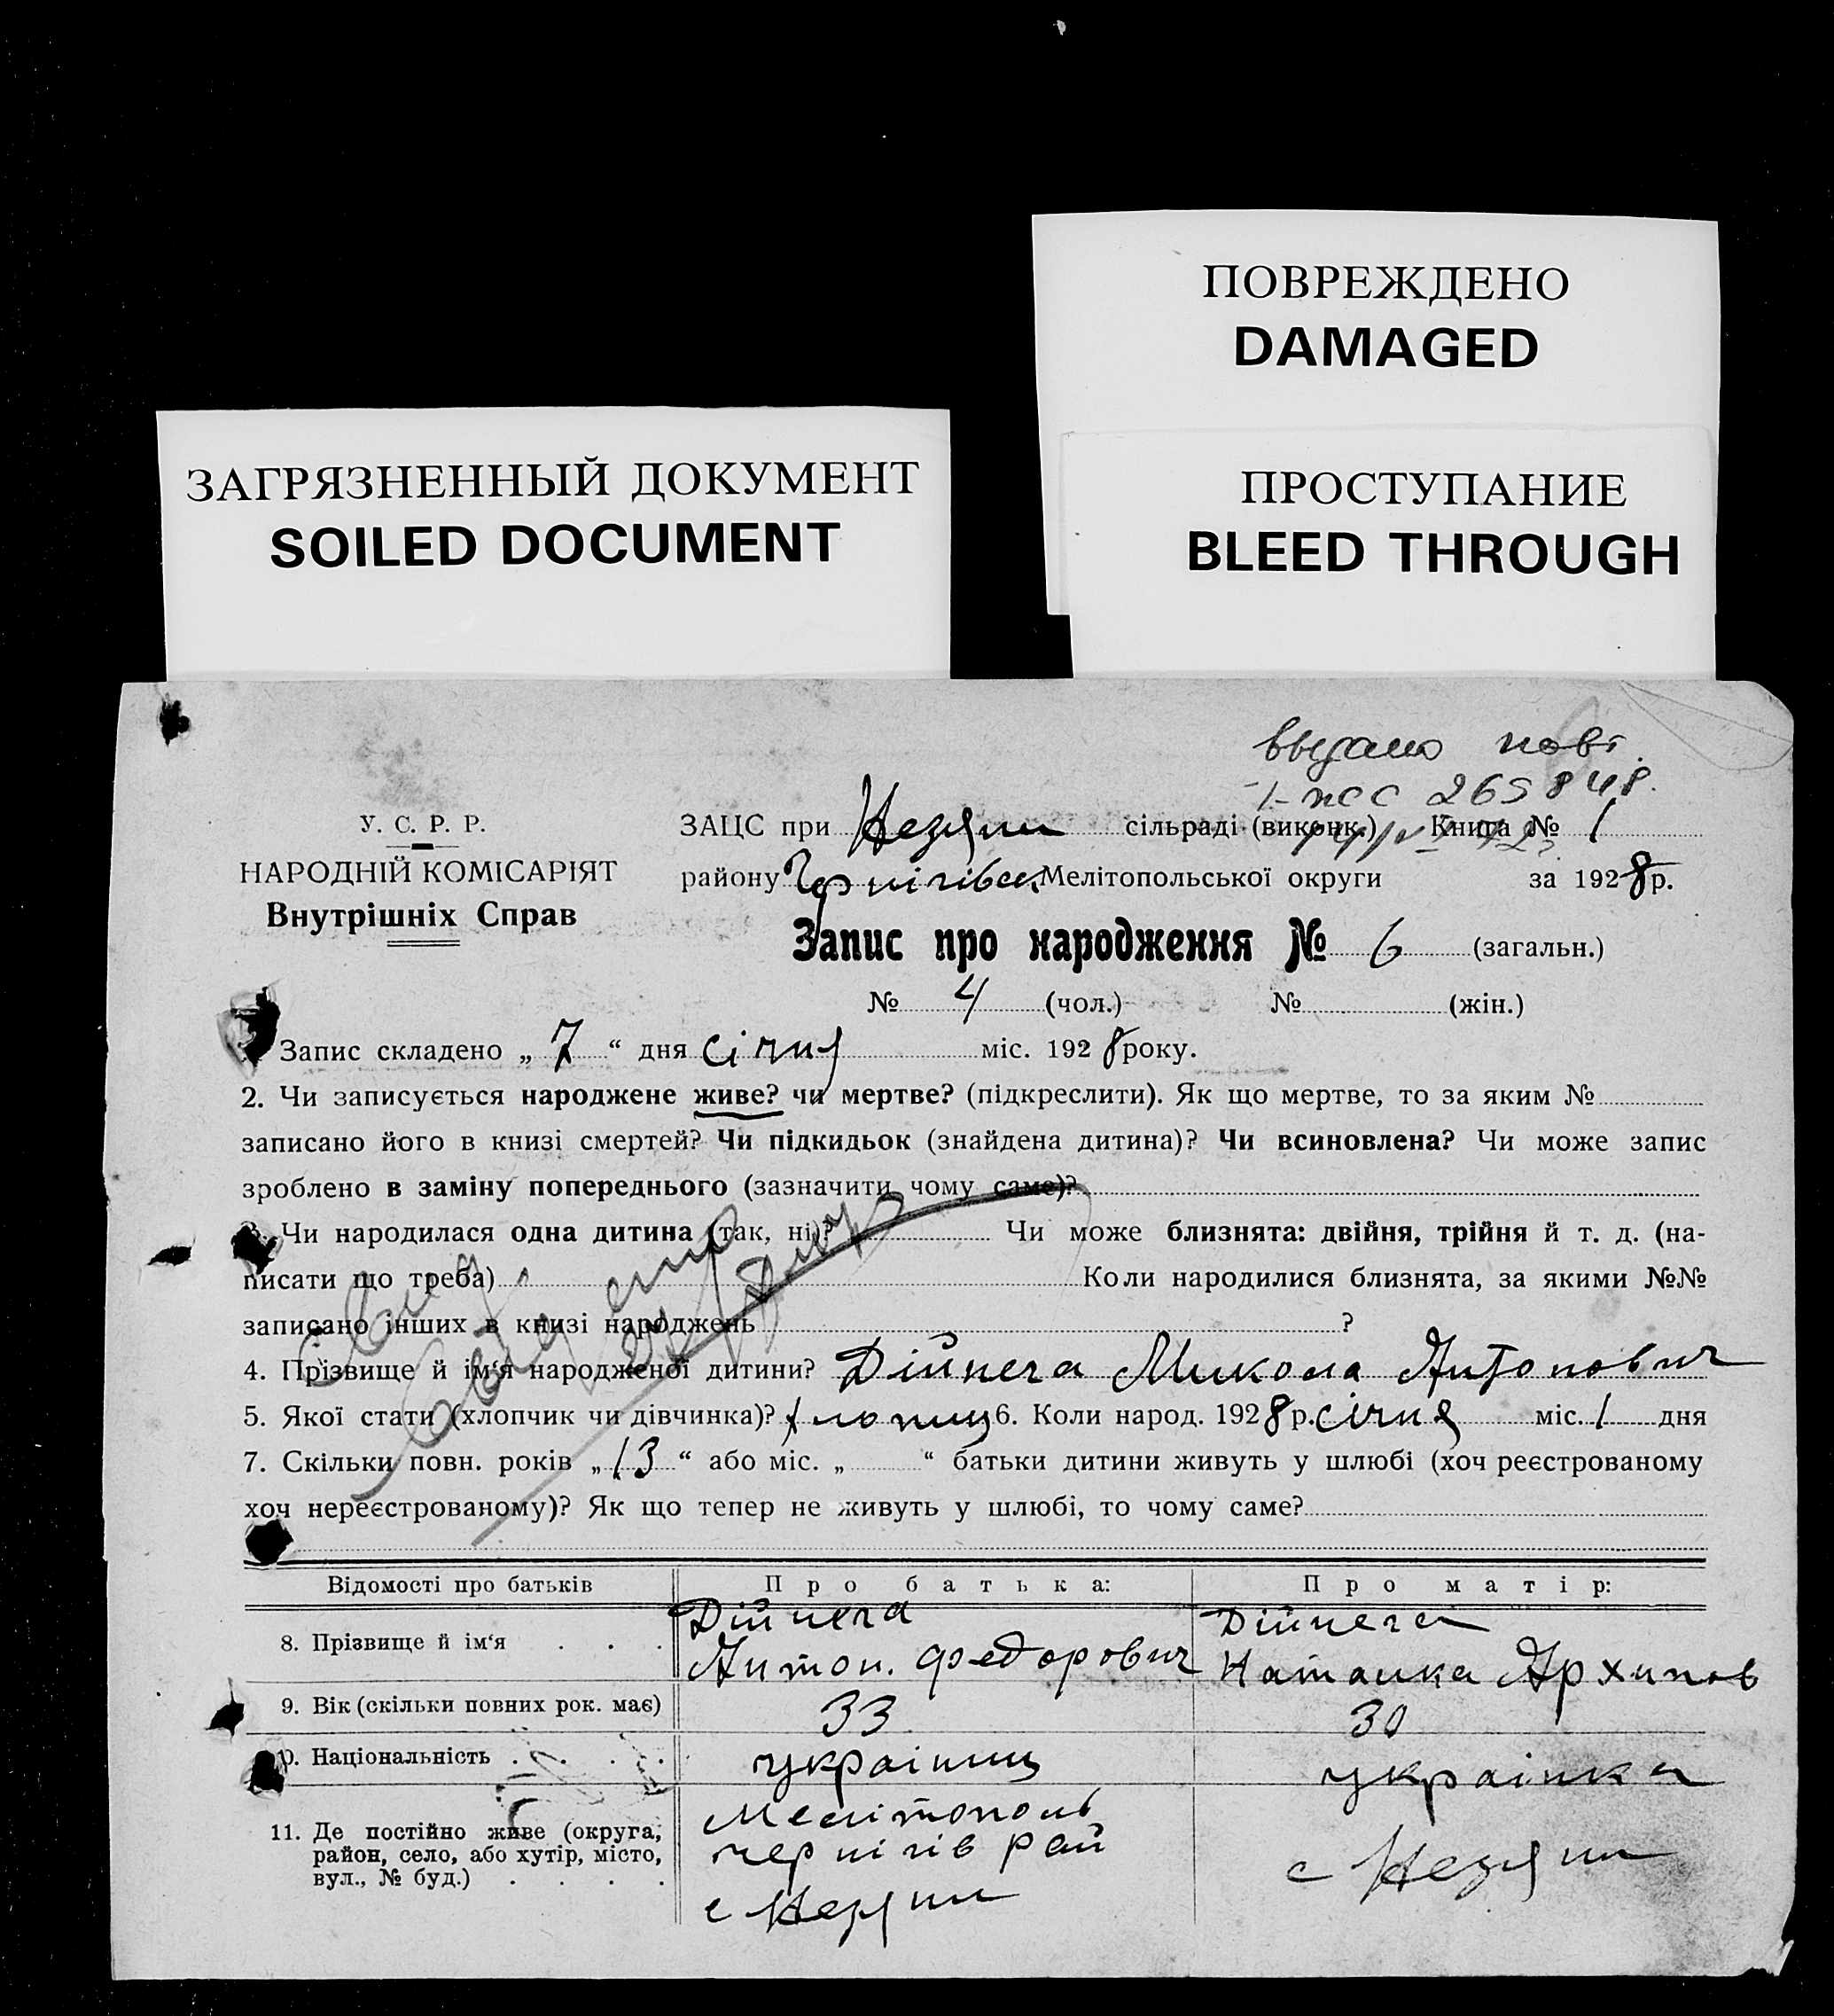 ПОВРЕЖДЕНО
DAMAGED
ЗАГРЯЗНЕННЫЙ ДОКУМЕНТ
SOILED DOCUMENT
ПРОСТУПАНИЕ
BLEED THROUGH
выдано повт.
265848.
У. С. Р. Р.
НАРОДНІЙ КОМІСАРІЯТ
Внутрішніх Справ
ЗАЦС при сільраді (виконк.) Книга № 1
району Чернігівск Мелітопольської округи за 1928 р.
Запис про народження № 6 (загальн.)
№ 4 (чол.) № (жін.)
Запис складено „ 7 “ дня січня міс. 1928 року.
2. Чи записується народжене живе? чи мертве? (підкреслити). Як що мертве, то за яким №
записано його в книзі смертей? Чи підкидьок (знайдена дитина)? Чи всиновлена? Чи може запис
зроблено в заміну попереднього (зазначити чому саме)?
3. Чи народилася одна дитина (так, ні)? Чи може близнята: двійня, трійня й т. д. (на-
писати що треба) Коли народилися близнята, за якими №№
записано інших в книзі народжень ?
4. Прізвище й ім‘я народженої дитини? Дійнега Микола Антонович
5. Якої стати (хлопчик чи дівчинка)? хлопиц 6. Коли народ. 1928 р. січня міс. 1 дня
7. Скільки повн. років „ 13 “ або міс. „ “ батьки дитини живуть у шлюбі (хоч реєстрованому
хоч нереєстрованому)? Як що тепер не живуть у шлюбі, то чому саме?
Відомості про батьків Про батька: Про матір:
8. Прізвище й ім‘я . . . Дійнега Антон. Федорович Дійнега Наталка Архипов
9. Вік (скільки повних рок. має) 33 30
10. Національність . . . . україниц українка
11. Де постійно живе (округа, район, село, або хутір, місто, вул., № буд.) . . . . Мелітополь черниігів рай с с